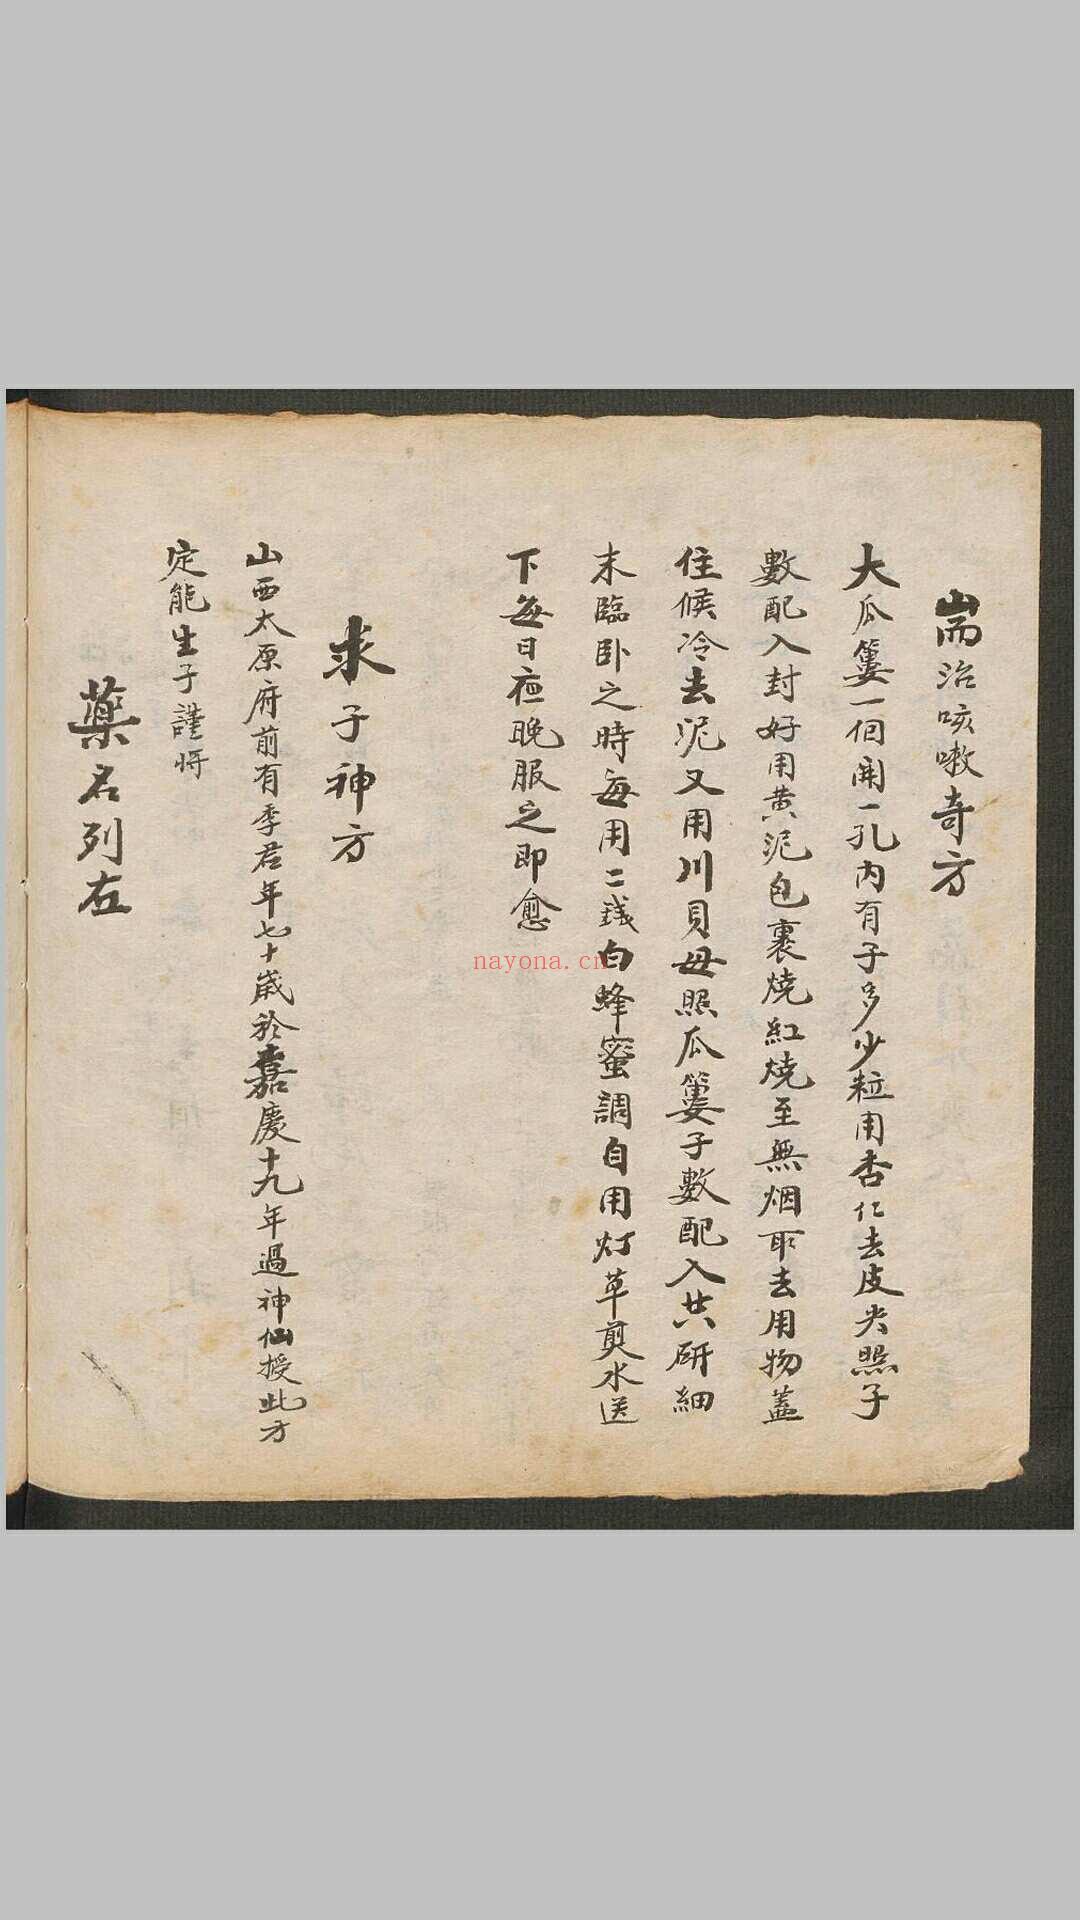 耑治咳嗽奇方
大瓜簍一個開一孔內有子多少粒用杏仁去皮尖照子
數配入封好用黃泥包裹燒紅燒至無烟取去用物蓋
住候冷去泥又用川貝母照瓜簍子數配入共研細
末臨卧之時每用二錢白蜂蜜調自用灯草煎水送
下每日夜晚服之即愈
求子神方
山西太原府前有季君年七十歲於嘉慶十九年過神仙授此方
定能生子謹將
藥名列左
nayona.cn